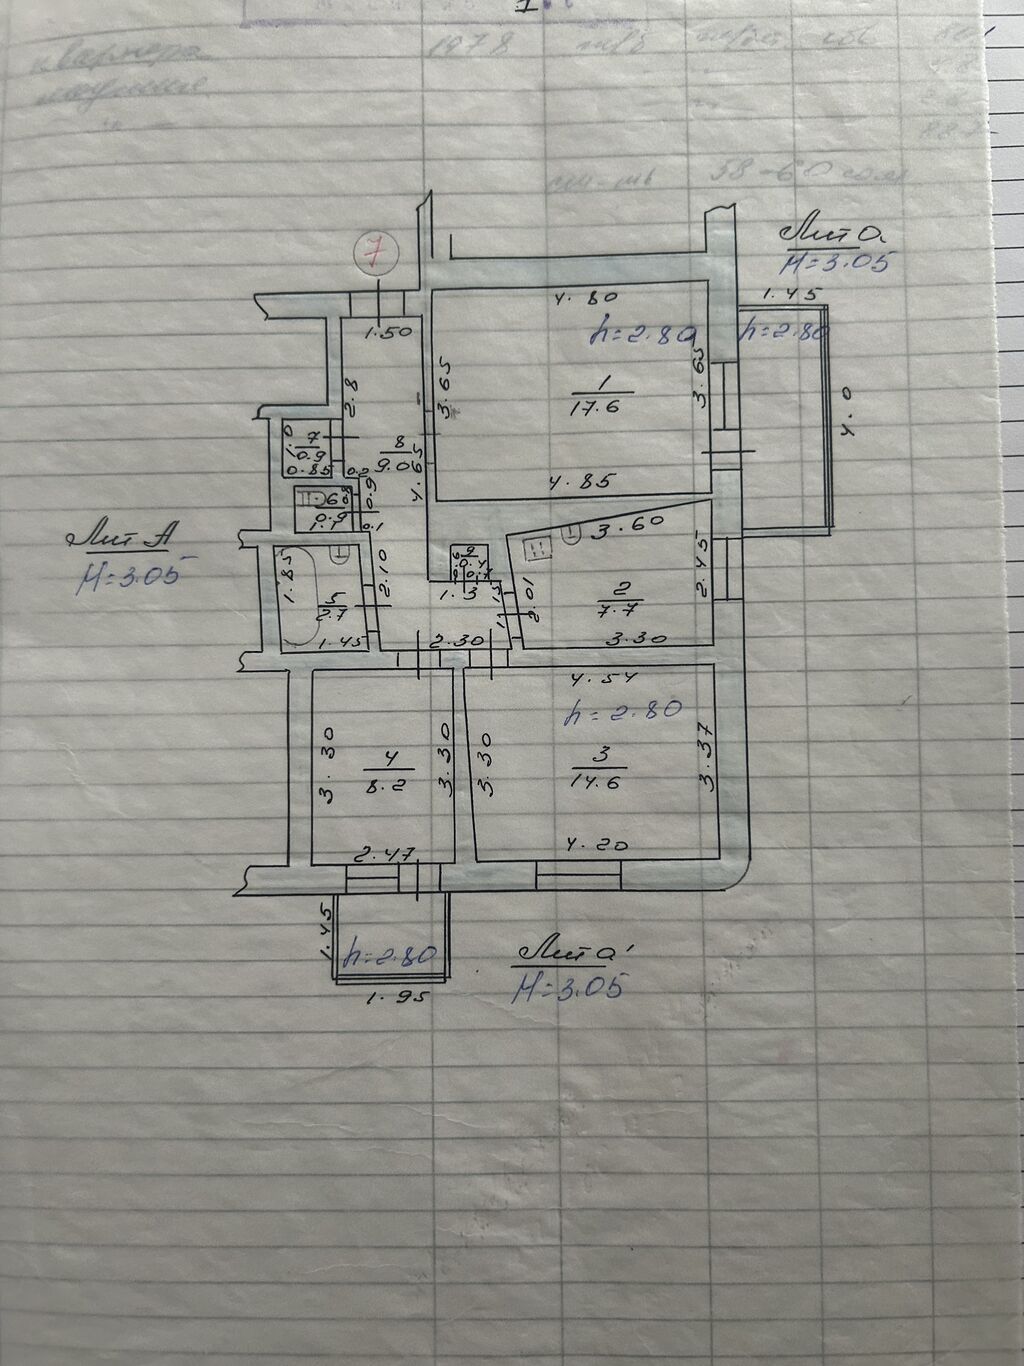 1978
58-60 сом
7
Лит а
H=3.05
1.45
4.80
h=2.80
h=2.80
1.50
2.8
3.65
3.65
1
17.6
4.0
1.0
7
0.9
0.85
0.2
8
9.0
4.65
4.85
6
0.9
1.1
0.8
0.9
0.1
3.60
Лит А
H=3.05
1.85
2.10
5
2.7
1.45
9
0.4
0.7
1.3
2.01
2
7.7
2.45
2.30
3.30
4.54
h=2.80
3.30
4
8.2
3.30
3.30
3
14.6
3.37
2.47
4.20
1.45
h=2.80
1.95
Лит а'
H=3.05